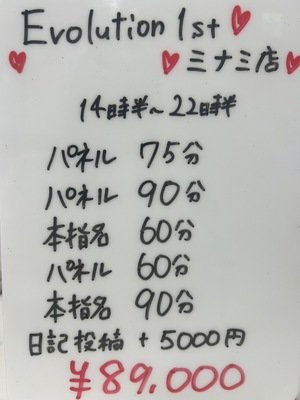 Evolution 1st
ミナミ店
14時半~22時半
パネル 75分
パネル 90分
本指名 60分
パネル 60分
本指名 90分
日記投稿 + 5000円
¥89,000